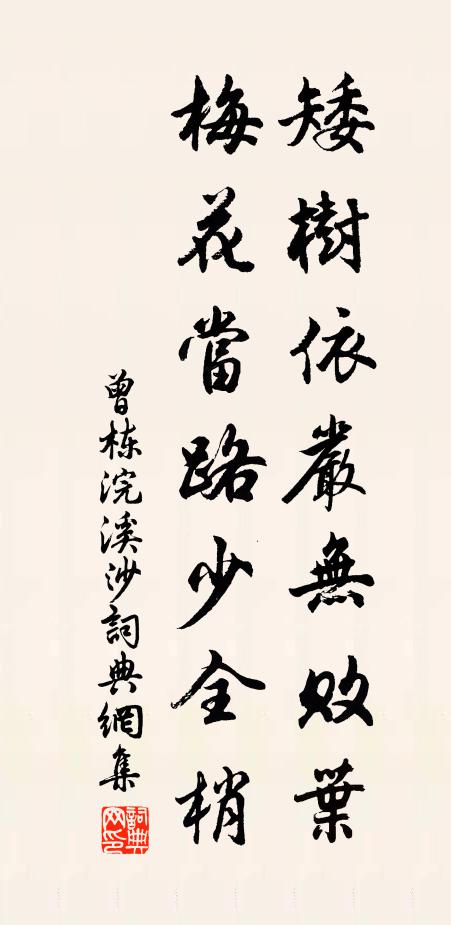 矮樹依嚴無敗葉
梅花當路少全梢
曾栋浣溪沙詞典網集
詞典网印